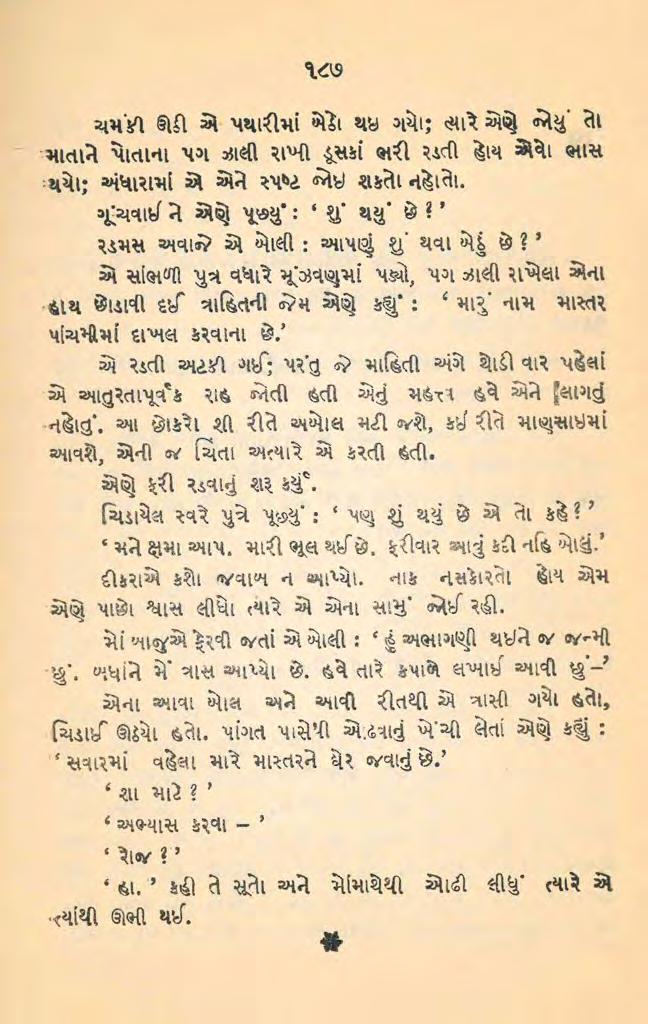 ૧૮૭
ચમકી ઊઠી એ પથારીમાં બેઠો થઇ ગયો; ત્યારે એણે જોયું તો
માતાને પોતાના પગ ઝાલી રાખી ડૂસકાં ભરી રડતી હોય એવો ભાસ
થયો; અંધારામાં એ એને સ્પષ્ટ જોઇ શકતો નહોતો.
ગૂંચવાઈ ને એણે પૂછ્યું : ‘ શું થયું છે ? ’
રડમસ અવાજે એ બોલી : આપણું શું થવા બેઠું છે ? ’
એ સાંભળી પુત્ર વધારે મૂંઝવણમાં પડ્યો, પગ ઝાલી રાખેલા એના
હાથ છોડાવી દઈ ત્રાહિતની જેમ એણે કહ્યું : ‘ મારું નામ માસ્તર
પાંચમીમાં દાખલ કરવાના છે.’
એ રડતી અટકી ગઈ; પરંતુ જે માહિતી અંગે થોડી વાર પહેલાં
એ આતુરતાપૂર્વક રાહ જોતી હતી એનું મહત્ત્વ હવે એને લાગતું
નહોતું. આ છોકરો શી રીતે અબોલ મટી જશે, કઇ રીતે માણસાઇમાં
આવશે, એની જ ચિંતા અત્યારે એ કરતી હતી.
એણે ફરી રડવાનું શરૂ કર્યું.
ચિડાયેલ સ્વરે પુત્રે પૂછ્યું : ‘ પણ શું થયું છે એ તો કહે ? ’
‘ મને ક્ષમા આપ. મારી ભૂલ થઈ છે. ફરીવાર આવું કદી નહિ બોલું.’
દીકરાએ કશો જવાબ ન આપ્યો. નાક નસકોરતો હોય એમ
એણે પાછો શ્વાસ લીધો ત્યારે એ એના સામું જોઈ રહી.
મોં બાજુએ ફેરવી જતાં એ બોલી : ‘ હું અભાગણી થઇને જ જન્મી
છું. બધાંને મેં ત્રાસ આપ્યો છે. હવે તારે કપાળે લખાઈ આવી છું–’
એના આવા બોલ અને આવી રીતથી એ ત્રાસી ગયો હતો,
ચિડાઈ ઊઠયો હતો. પાંગત પાસેથી ઓઢવાનું ખેંચી લેતાં એણે કહ્યું :
‘ સવારમાં વહેલા મારે માસ્તરને ઘેર જવાનું છે.’
‘ શા માટે ? ’
‘ અભ્યાસ કરવા – ’
‘ રોજ ? ’
‘ હા. ’ કહી તે સૂતો અને મોંમાથેથી ઓઢી લીધું ત્યારે એ
ત્યાંથી ઊભી થઈ.